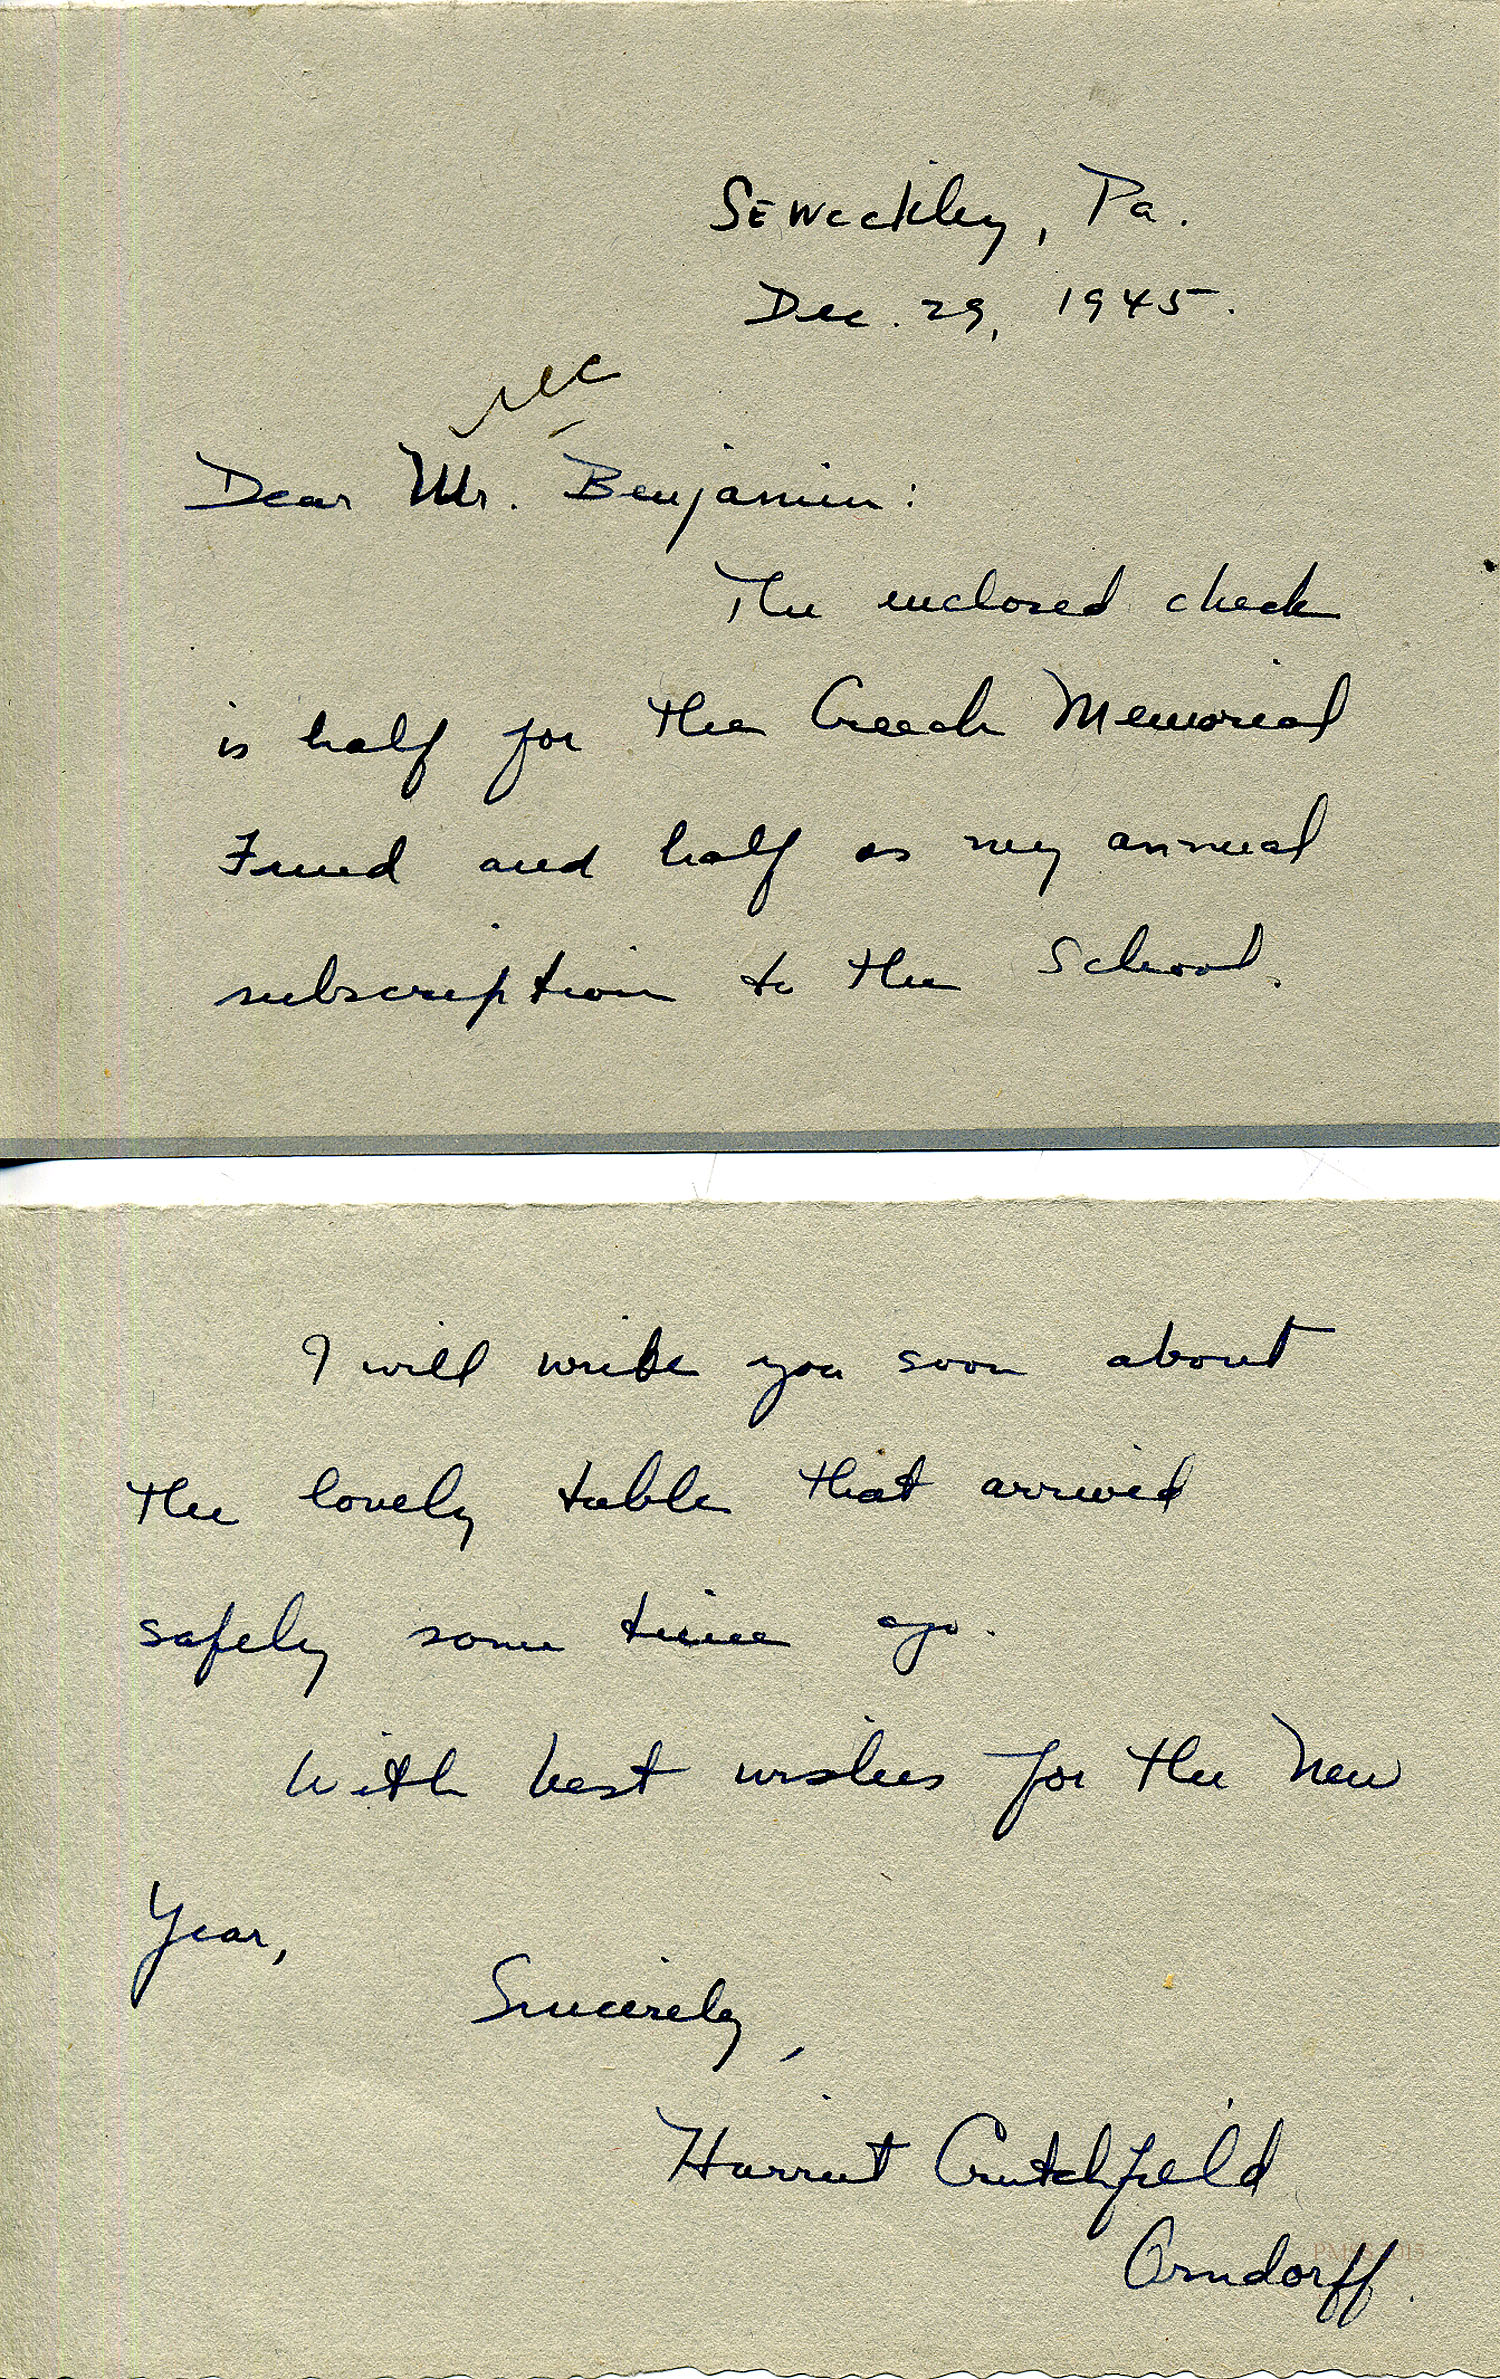 Sewickley, Pa.
Dec. 29, 1945.
Dear Mr. Benjamin:
The enclosed check
is half for the Creech Memorial
Fund and half as my annual
subscription to the School.
I will write you soon about
the lovely table that arrived
safely some time ago.
With best wishes for the New
Year,
Sincerely,
Harriet Crutchfield
Orndorff.
PMSS 2013